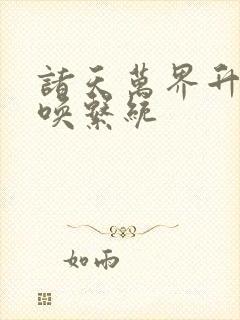 諸天萬界升
喚繫統
如雨